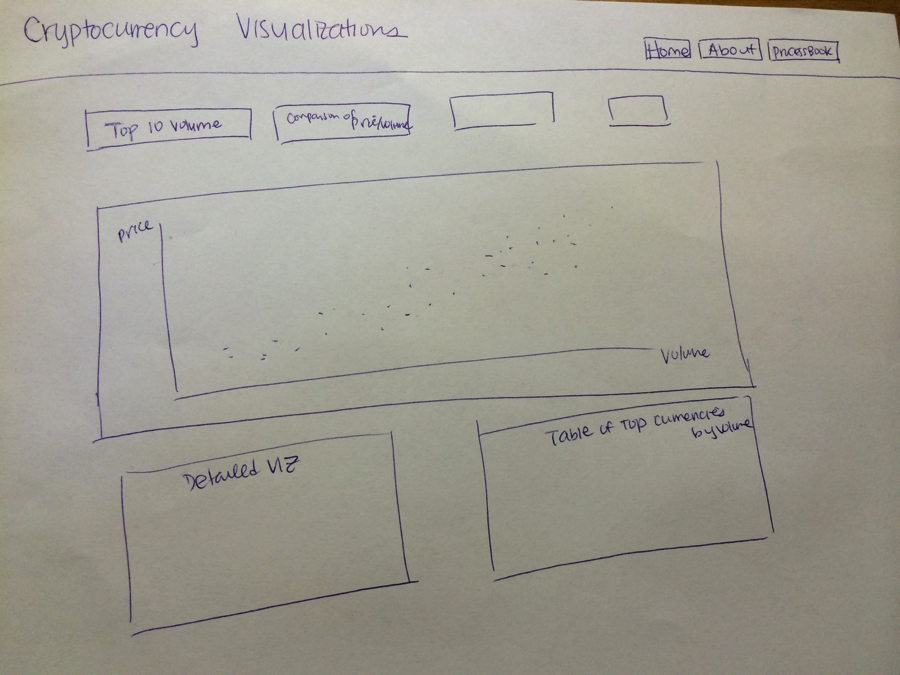 Cryptocurrency Visualizations
Home About ProcessBook
Top 10 volume
Comparison of
price/volume
price
Volume
Detailed VIZ
Table of Top currencies
by volume